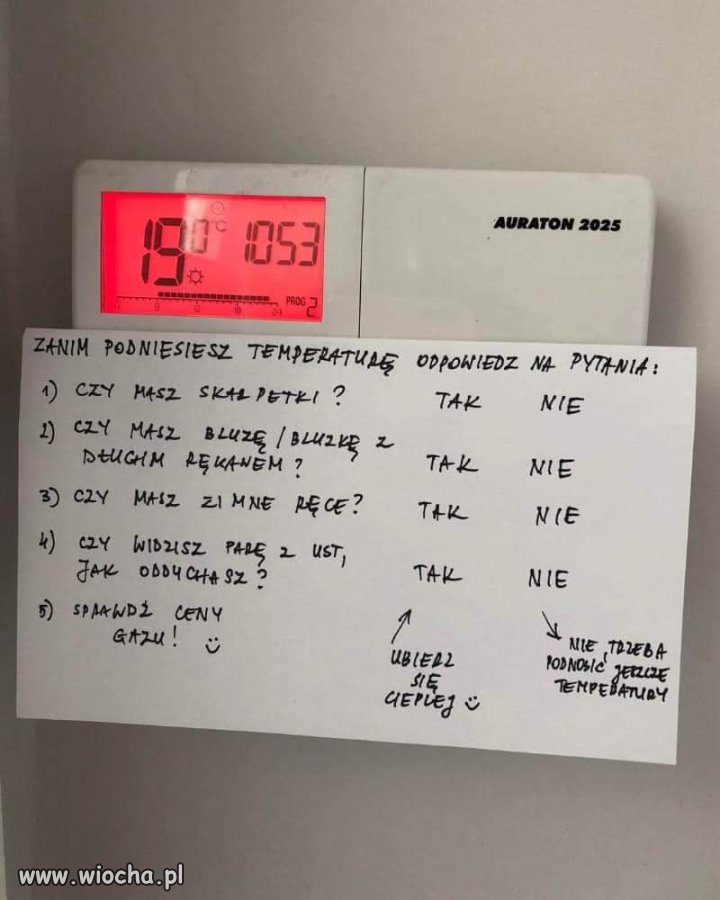 AURATON 2025
19.0 °C 10 53
0 6 12 18 24 PROG 2
ZANIM PODNIESIESZ TEMPERATURĘ ODPOWIEDZ NA PYTANIA:
1) CZY MASZ SKARPETKI? TAK NIE
2) CZY MASZ BLUZĘ/BLUZKĘ Z
DŁUGIM RĘKAWEM? TAK NIE
3) CZY MASZ ZIMNE RĘCE? TAK NIE
4) CZY WIDZISZ PARĘ Z UST,
JAK ODDYCHASZ? TAK NIE
5) SPRAWDŹ CENY
GAZU!
UBIERZ
SIĘ
CIEPLEJ
NIE TRZEBA
PODNOSIĆ JESZCZE
TEMPERATURY
www.wiocha.pl